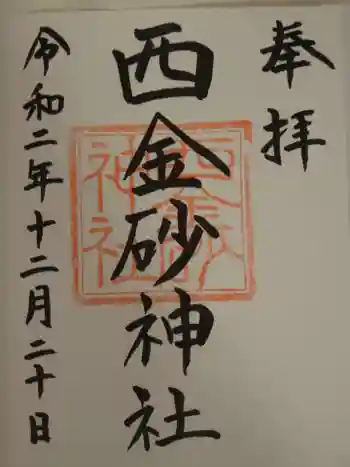 奉拝
西金砂神社
令和二年十二月二十日